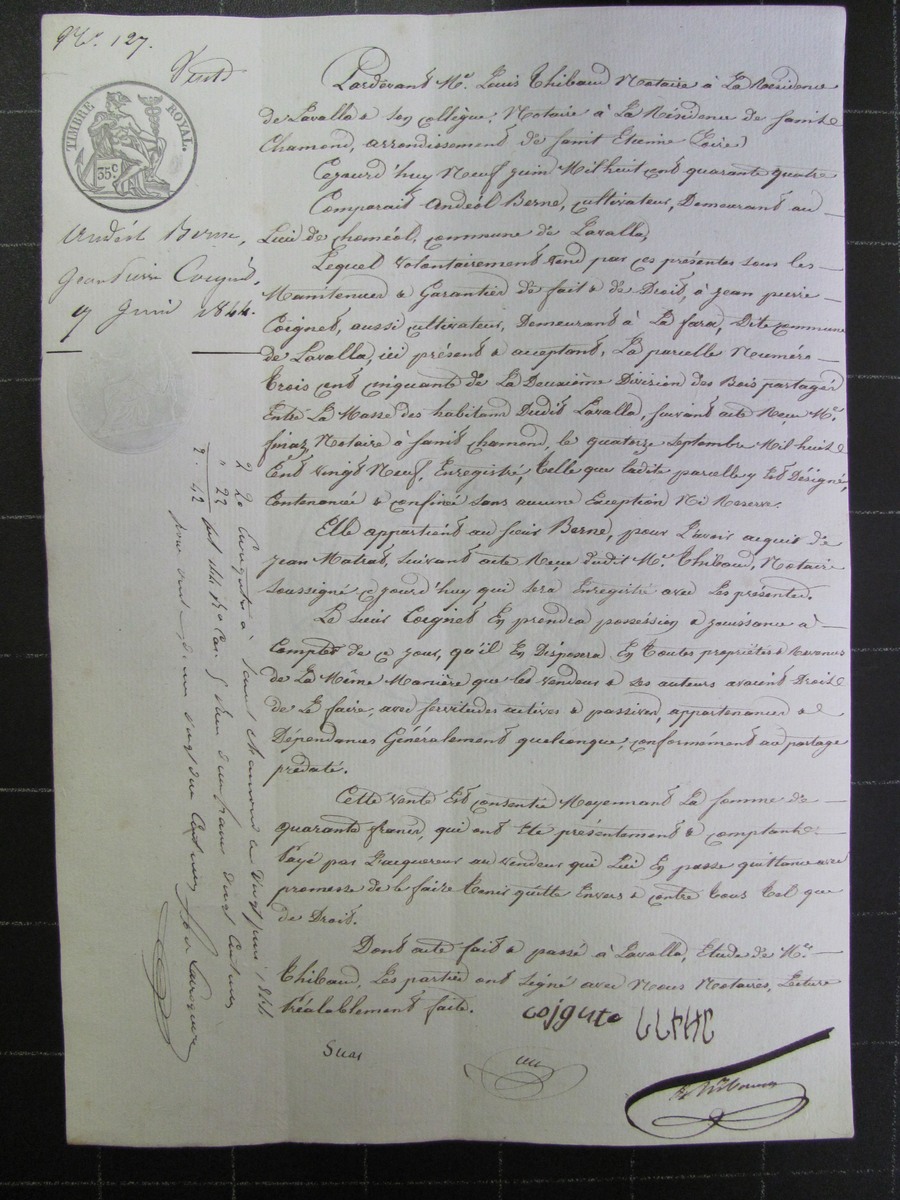 N.° 127.
Vente
TIMBRE ROYAL.
35 c.
Andéol Berne,
Jean Pierre Coignet,
9 Juin 1844.
Pardevant M.e Louis Thibaud Notaire à La Résidence
de Lavalla & son collègue, Notaire à La Résidence de Saint
Chamond, arrondissement de Saint Etienne (Loire)
Cejourd'huy Neuf juin Mil huit cent quarante quatre
Comparait Andéol Berne, cultivateur, Demeurant au
Lieu de choméol, commune de Lavalla,
Lequel volontairement vend par ces présentes sous les
Maintenues & Garanties de fait & de Droit, à jean pierre
Coignet, aussi cultivateur, Demeurant à La fara, Dite commune
de Lavalla, ici présent & acceptant, La parcelle Numéro
trois cent cinquante de La Deuxième Division des Bois partagés
Entre La Masse des habitans Dudit Lavalla, suivant acte Reçu M.e
finaz, Notaire à saint chamond, le quatorze Septembre Mil huit
Cent vingt Neuf, Enregistré, telle que ladite parcelle y est Désignée,
Contenancée & confinée sans aucune Exception Ni Réserve.
Elle appartient au sieur Berne, pour L'avoir acquis de
jean Matras, suivant acte Reçu dudit M.e Thibaud, Notaire
soussigné cejourd'huy qui sera Enregistré avec Les présentes.
Le sieur Coignet En prendra possession & jouissance à
Compter de ce jour, qu'il En Disposera En toutes propriétés & Revenus
de La Même Manière que les vendeur & ses auteurs avaient Droit
de Le faire, avec servitudes actives & passives, appartenances &
Dépendances Généralement quelconque, conformément au partage
prédaté.
Cette vente Est consentie Moyennant La somme de
quarante francs, qui ont été présentement & comptant
Payé par L'acquéreur au vendeur qui Lui En passe quittance avec
promesse de le faire tenir quitte Envers & contre tous tel que
de Droit.
Dont acte fait & passé à Lavalla, Etude de M.e
Thibaud, Les parties ont signé avec Nous Notaires, Lecture
Préalablement faite.
cojgnte
2 20 Enregistré à Saint chamond le Vingt juin 1844
" 22 deux francs vingt Centimes
2. 42 vingt deux Centimes